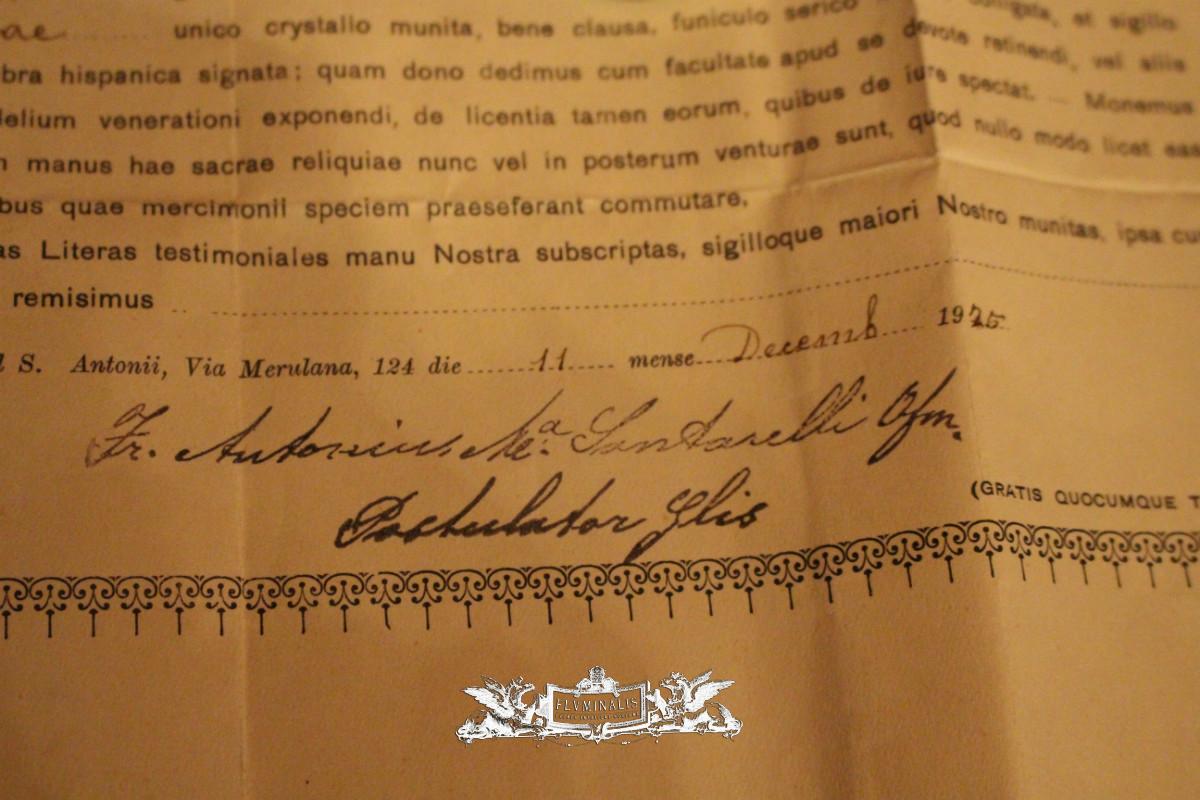 ae unico crystallo munita, bene clausa, funiculo serico colligata, et sigillo
bra hispanica signata; quam dono dedimus cum facultate apud se devote retinendi, vel aliis
delium venerationi exponendi, de licentia tamen eorum, quibus de iure spectat. — Monemus
n manus hae sacrae reliquiae nunc vel in posterum venturae sunt, quod nullo modo licet eas
bus quae mercimonii speciem praeseferant commutare,
as Literas testimoniales manu Nostra subscriptas, sigilloque maiori Nostro munitas, ipsa cu
remisimus
S. Antonii, Via Merulana, 124 die 11 mense Decemb 1925
Fr. Antonius Ma. Santarelli Ofm.
Postulator Glis
(GRATIS QUOCUMQUE T
FLVMINALIS